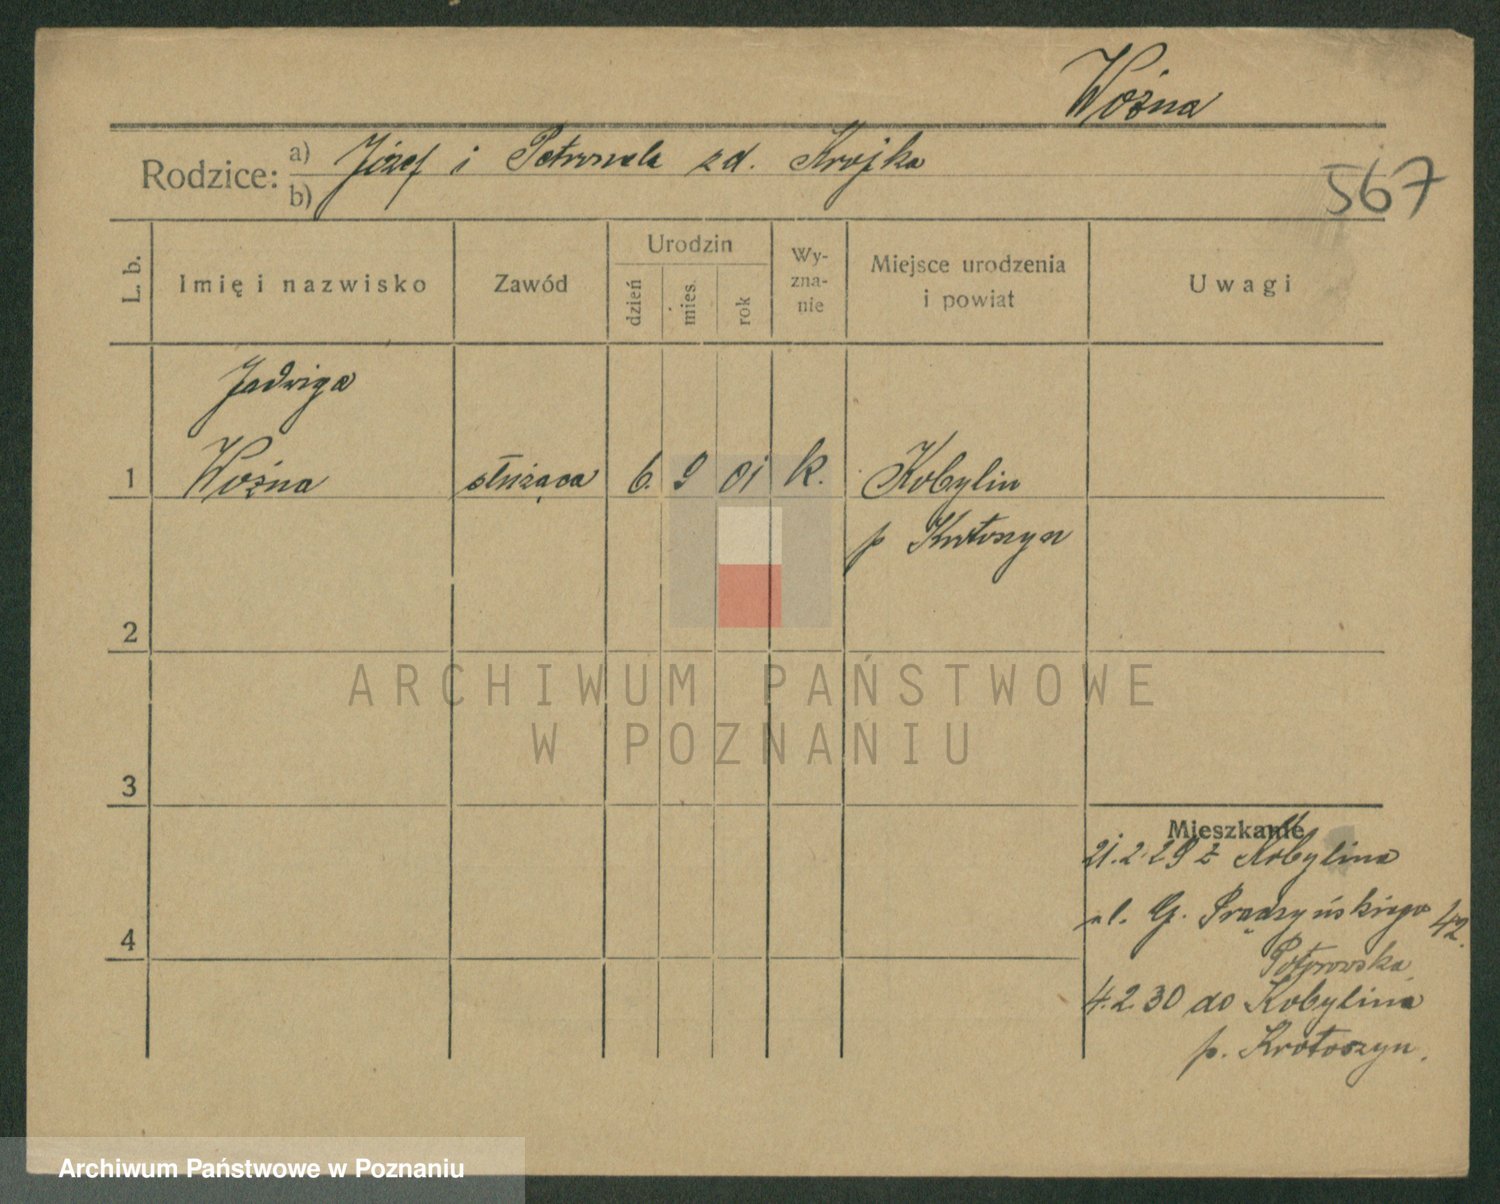 Woźna
Rodzice: a) Józef i Petronela zd. Krojka
b)
567
L. b.
Imię i nazwisko
Zawód
Urodzin
dzień
mies.
rok
Wy-
zna-
nie
Miejsce urodzenia
i powiat
Uwagi
Jadwiga
1 Woźna służąca 6. 9 01 k. Kobylin
p Krotoszyn
2
3
4
Mieszkanie
21.2.29 z Kobylina
ul. G. Prądzyńskiego 42.
Piotrowska
4.2.30 do Kobylina
p. Krotoszyn.
ARCHIWUM PAŃSTWOWE
W POZNANIU
Archiwum Państwowe w Poznaniu